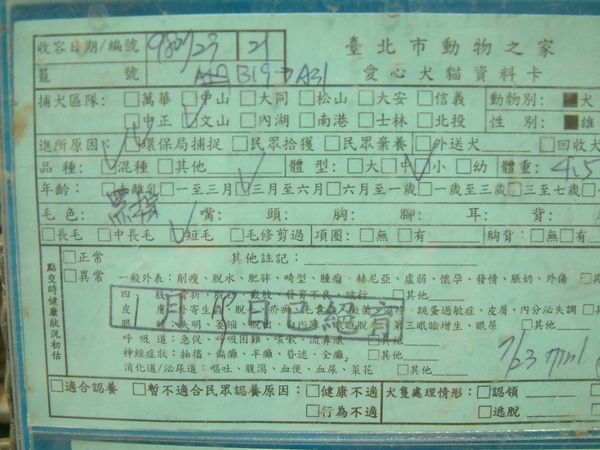 收容日期/編號 21 臺北市動物之家
籠號 愛心犬貓資料卡
捕犬區隊: □萬華 □中山 □大同 □松山 □大安 □信義 動物別: ■犬
□中正 □文山 □內湖 □南港 □士林 □北投 性別: ■雄
進所原因: □環保局捕捉 □民眾拾獲 □民眾棄養 □外送犬 □回收犬
品種: □混種 □其他 體型: □大 □中 □小 □幼 體重: 4.5
年齡: □離乳 □一至三月 □三月至六月 □六月至一歲 □一歲至三歲 □三至七歲
毛色: 黑棕 嘴: 頭: 胸: 腳: 耳: 背:
□長毛 □中長毛 □短毛 □毛修剪過 項圈: □無 □有 胸背: □無 □有
點交時健康狀況初估
□正常 其他註記:
□異常 一般外表: 削瘦、脫水、肥胖、畸型、腫瘤、赫尼亞、虛弱、懷孕、發情、脹奶、外傷
四肢: 發育不良、跛行 □其他
皮膚: 外寄生蟲、脫毛、跳蚤過敏症、皮屑、內分泌失調
眼睛: 失明、萎縮、第三眼瞼增生、眼屎 □其他
呼吸道: 急促、呼吸困難、咳嗽、流鼻膿 □其他
神經症狀: 抽搐、偏癱、半癱、昏迷、全癱、 □其他
消化道/泌尿道: 嘔吐、腹瀉、血便、血尿、菜花 □其他
1月19日已絕育
7/23
□適合認養 □暫不適合民眾認養原因: □健康不適 犬隻處理情形: □認領
□行為不適 □逃脫